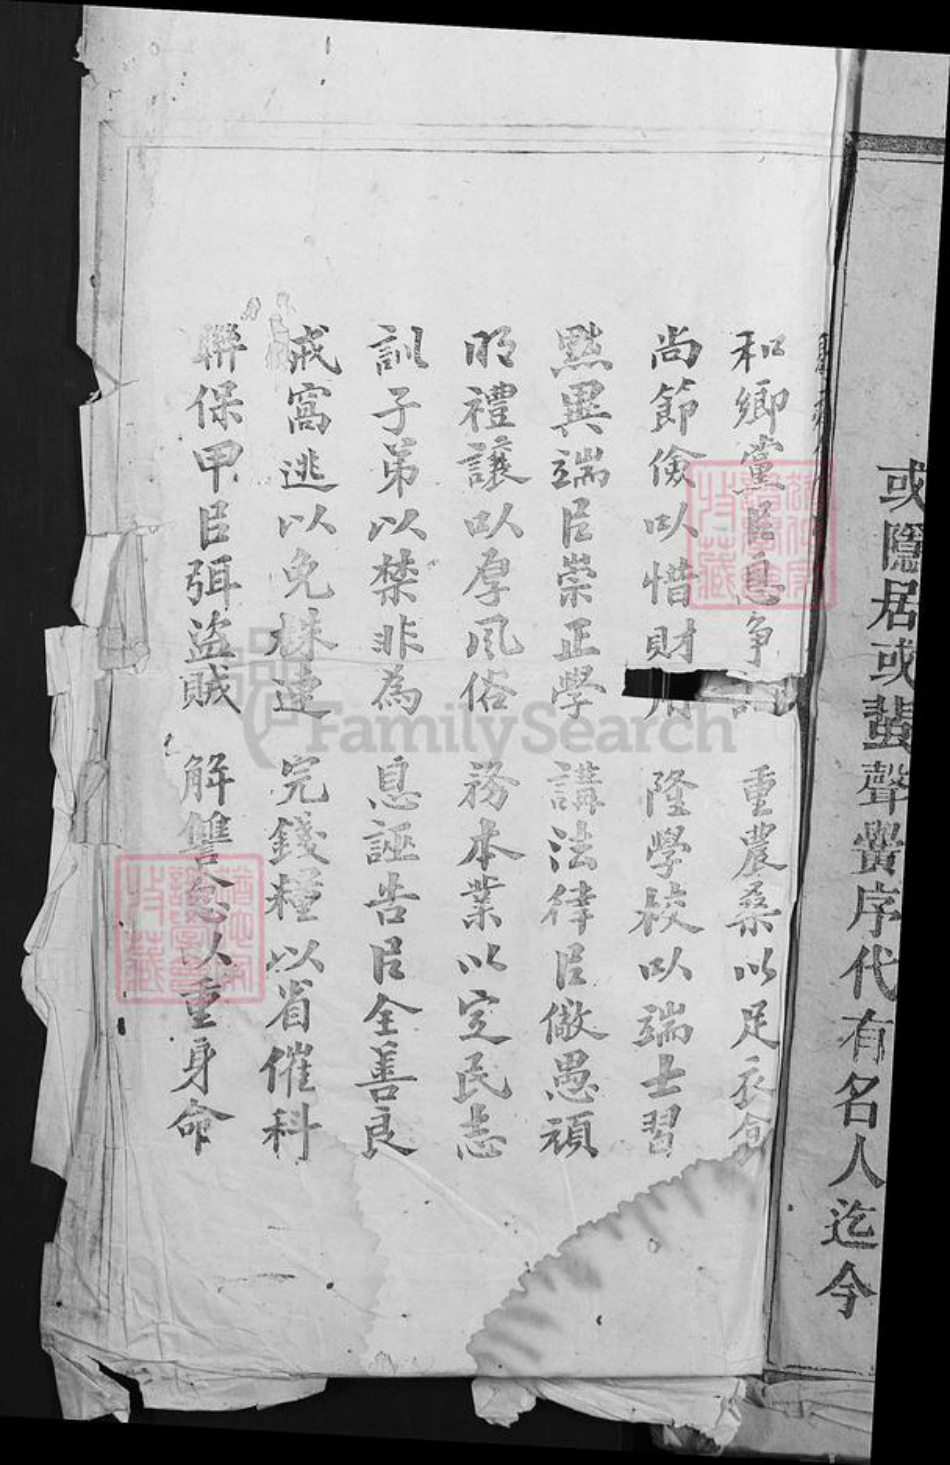 或隱居或蜚聲黌序代有名人迄今
和鄉黨㠯息争訟 重農桑以足衣食
尚節儉以惜財用 隆學校以端士習
黜異端㠯崇正學 講法律㠯儆愚頑
明禮讓以厚風俗 務本業以定民志
訓子弟以禁非為 息誣告㠯全善良
戒窩逃以免株連 完錢糧以省催科
聯保甲㠯弭盜賊 解讐忿以重身命
FamilySearch